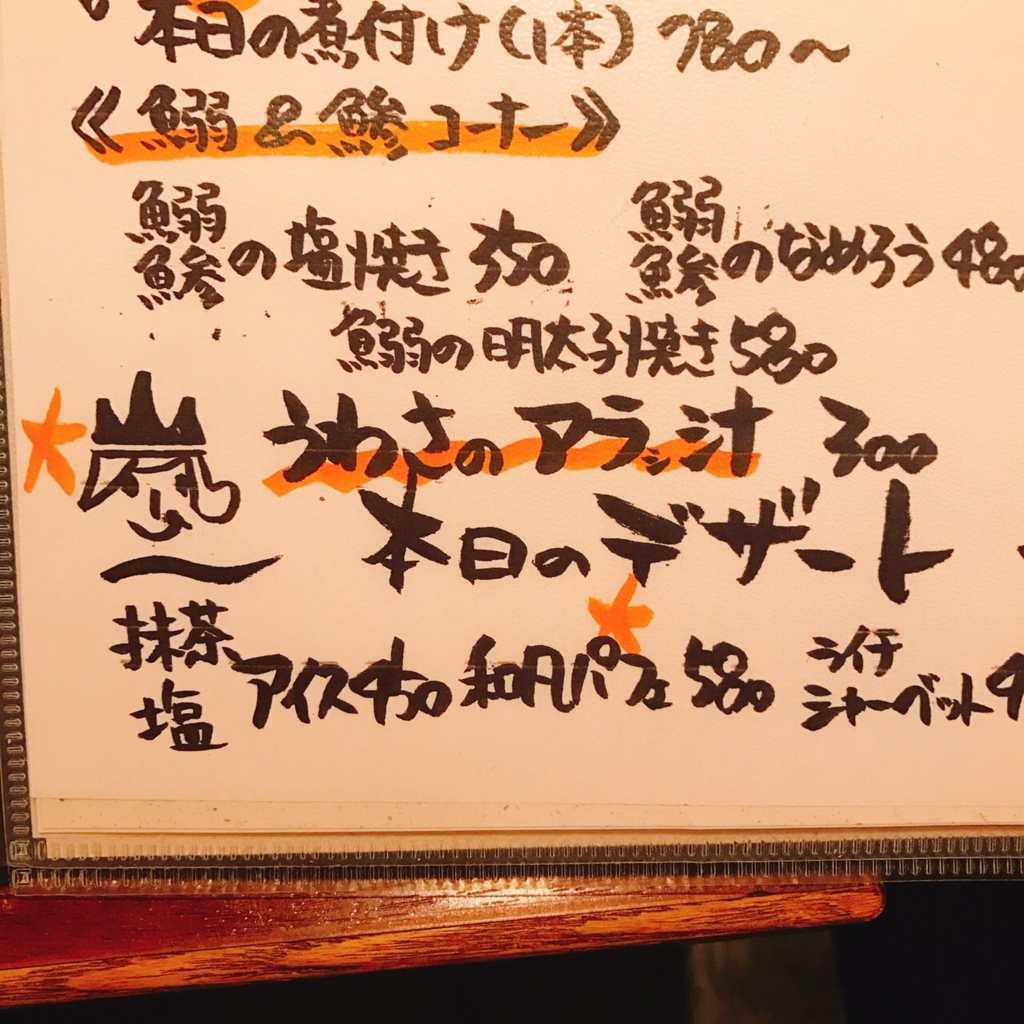 本日の煮付け(1本) 780〜
《鰯&鯵コーナー》
鰯鯵の塩焼き 350 鰯鯵のなめろう 480
鰯の明太子焼き 580
うわさのアラッ汁 300
本日のデザート
抹茶塩アイス 450 和風パフェ 580 ライチシャーベット 4